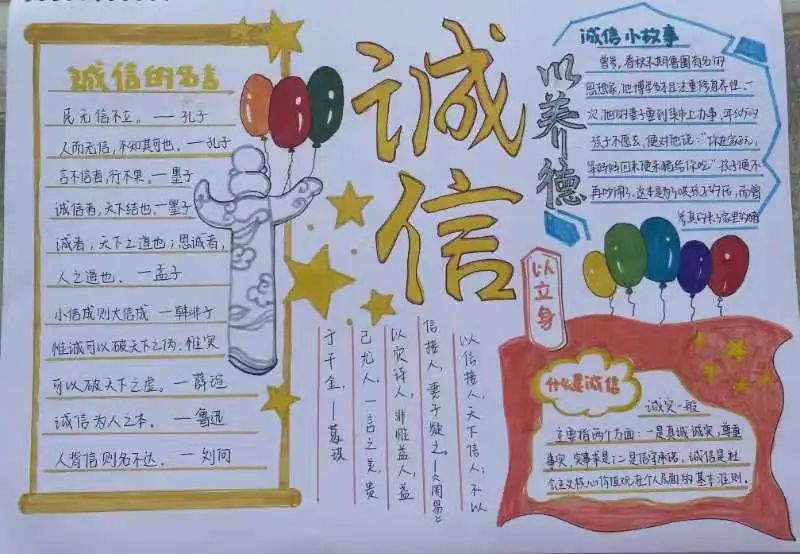 诚信的名言
民无信不立。—孔子
人而无信,不知其可也。—孔子
言不信者,行不果。—墨子
诚信者,天下结也—墨子
诚者,天下之道也;思诚者,
人之道也。—孟子
小信成则大信成—韩非子
惟诚可以破天下之伪,惟实
可以破天下之虚。—薛瑄
诚信为人之本。—鲁迅
人背信则名不达。—刘向
诚信
以养德
以立身
诚信小故事
曾参,春秋末期鲁国有名的
思想家,他博学多才且注重修身养性。一
次,他的妻子要到集市上办事,年幼的
孩子不愿去,便对他说:“你在家好玩,
等妈妈回来便杀猪给你吃”孩子便不
再吵闹了,这本是为了哄孩子的话,而曾
参真的杀了家里的猪
以信接人,天下信人;不以
信接人,妻子疑之。—《周易》
以实待人,非惟益人,益
己尤人,一言之美,贵
于千金。—葛洪
什么是诚信
诚实一般
主要指两个方面:一是真诚诚实,尊重
事实,实事求是;二是信守承诺。诚信是社
会主义核心价值观在个人层面的基本准则。